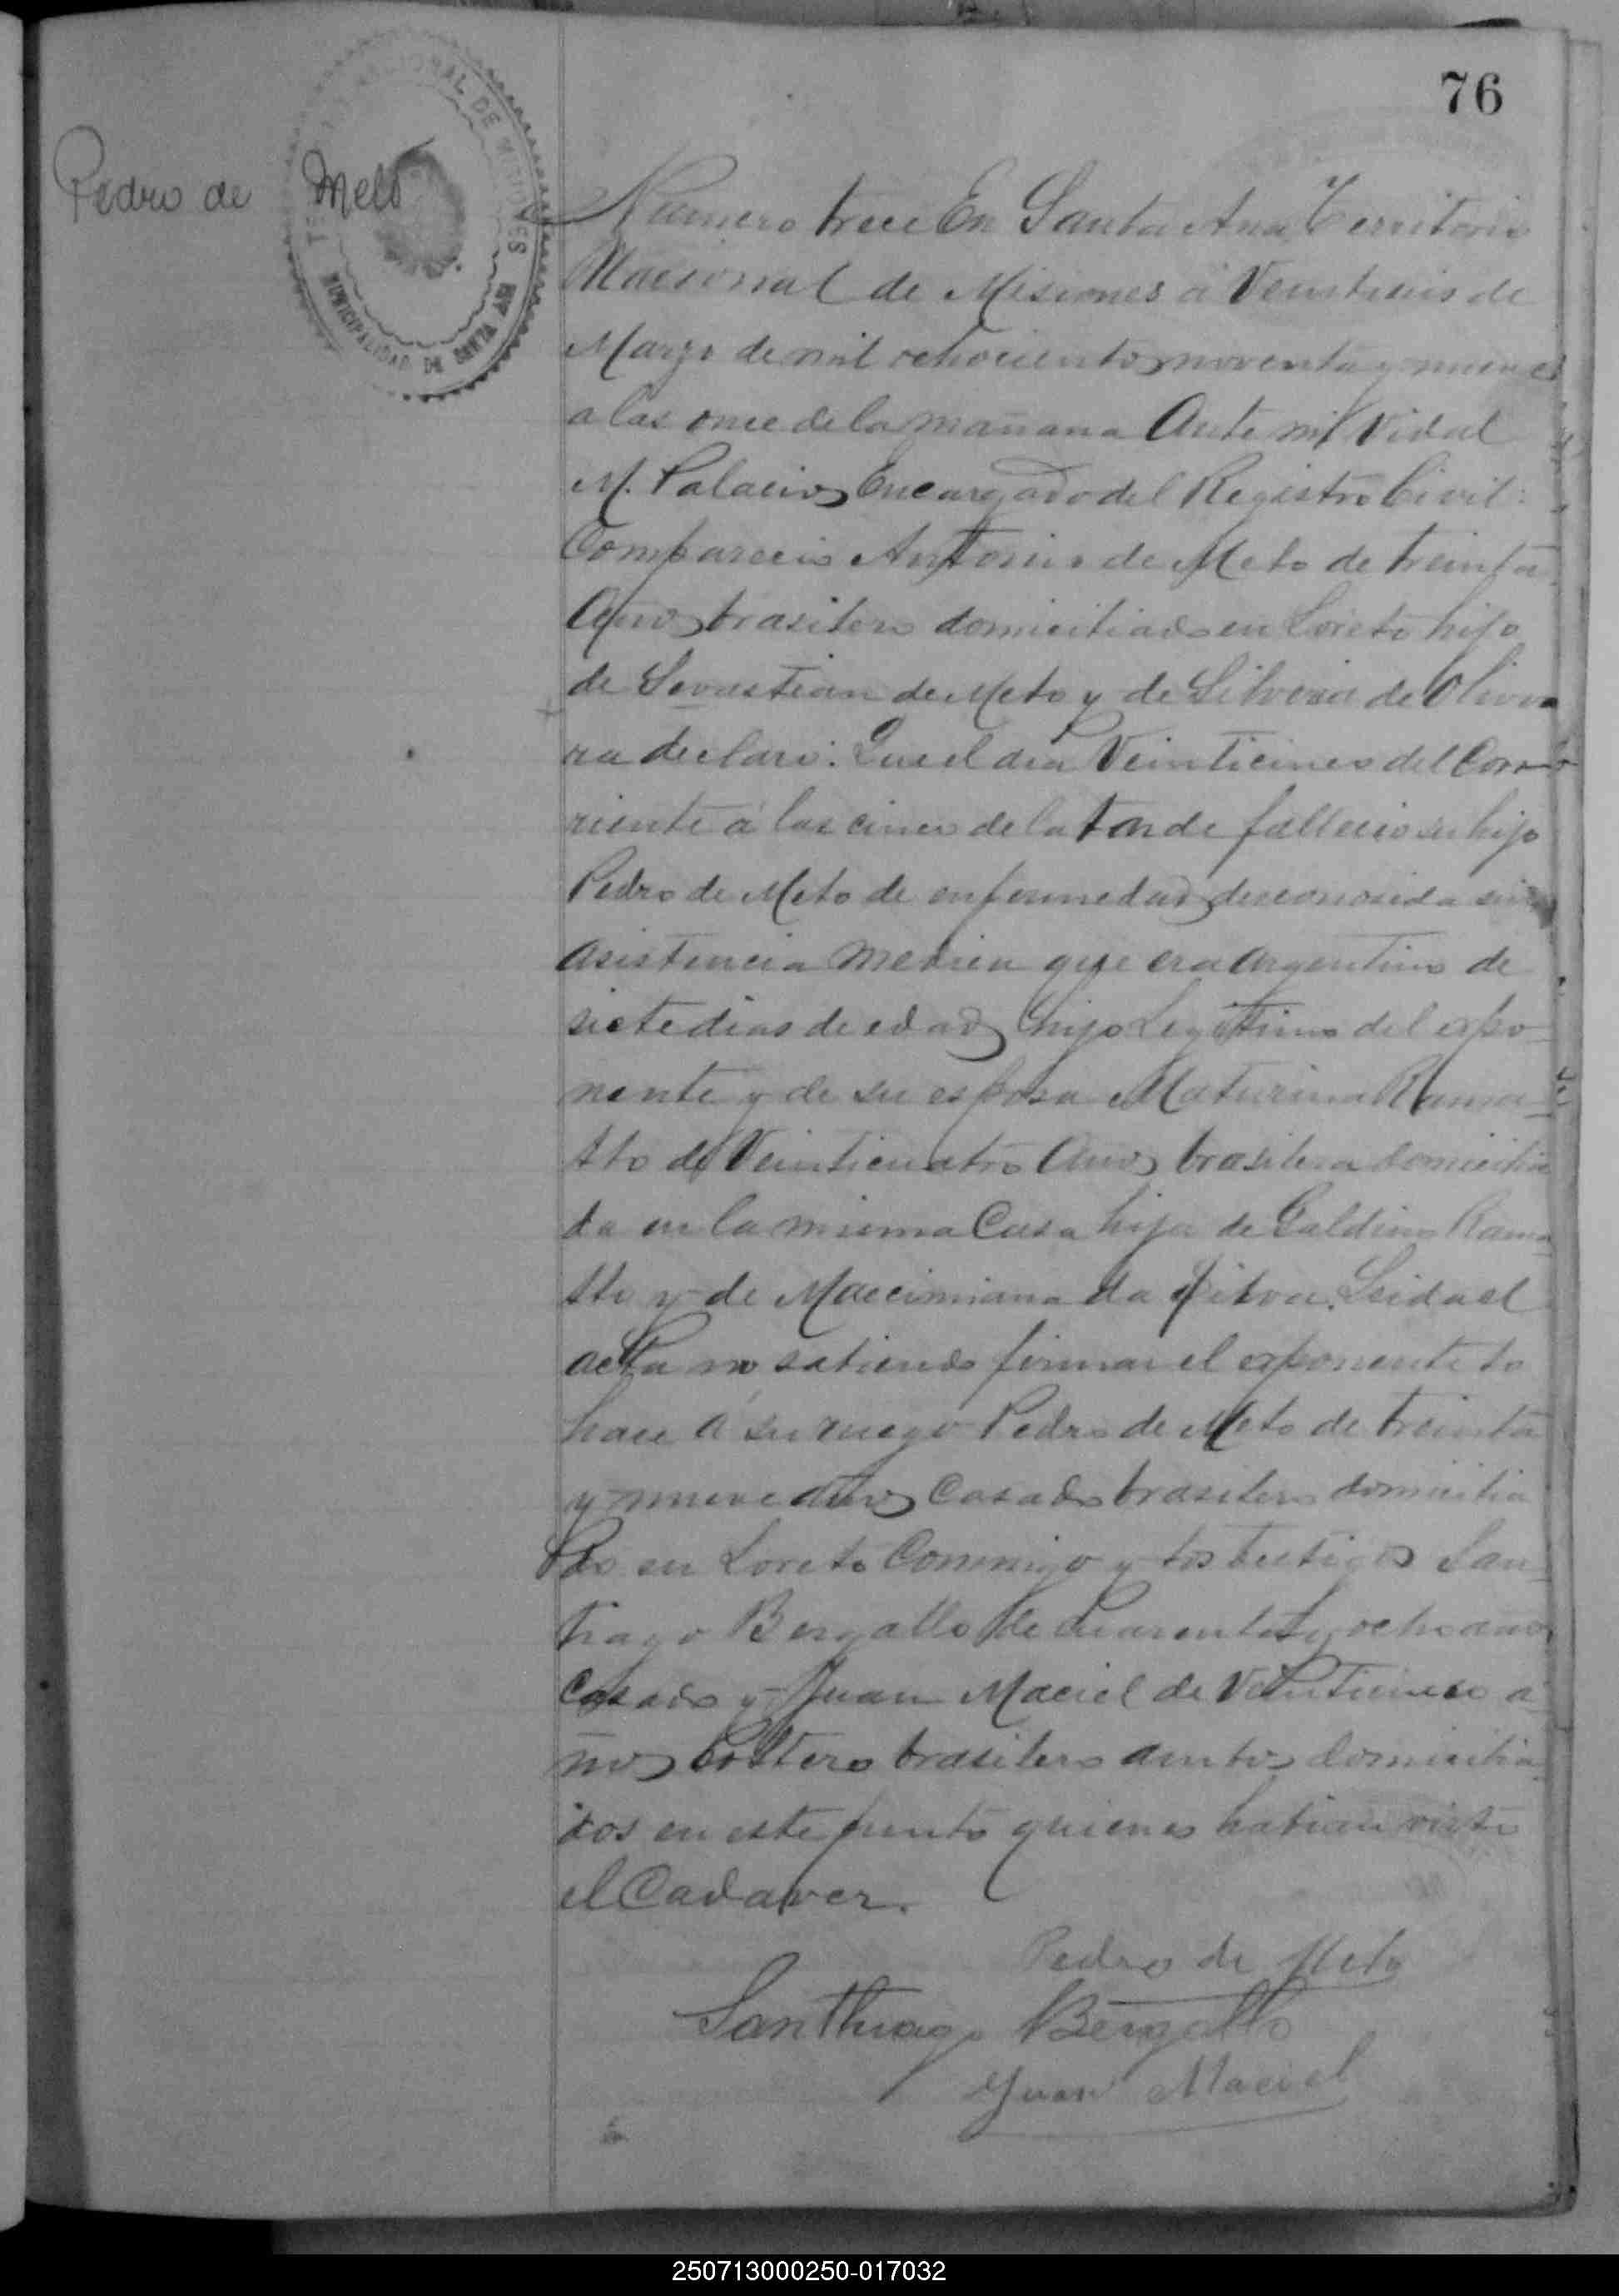 76
Pedro de Melo
TERRITORIO NACIONAL DE MISIONES
MUNICIPALIDAD DE SANTA ANA
Numero trece En Santa Ana Territorio
Nacional de Misiones á Veintiseis de
Marzo de mil ochocientos noventa y nueve
a las once de la mañana Ante mi Vidal
M. Palacios Encargado del Registro Civil:
Comparecio Antonio de Melo de treinta
años brasilero domiciliado en Loreto hijo
de Sevastian de Melo y de Silveria de Olivei
ra declaro: Que el dia Veinticinco del Cor
riente á las cinco de la tarde fallecio su hijo
Pedro de Melo de enfermedad desconosida sin
asistencia medica que era argentino de
siete dias de edad hijo Legitimo del expo
nente y de su esposa Maturina Rama
lho de Veinticuatro años brasilera domicilia
da en la misma Casa hija de Galdino Rama
lho y de Maccimiana da Silva. Leida el
acta no sabiendo firmar el exponente lo
hace á su ruego Pedro de Melo de treinta
y nueve años Casado brasilero domicilia
do en Loreto Conmigo y los testigos San
tiago Bergallo de Cuarenta y ocho años
Casado y Juan Maciel de Veinticinco a
ños Soltero brasilero ambos domicilia
dos en este punto quienes habian visto
el Cadaver.
Pedro de Melo
Santhiago Bergallo
Juan Maciel
250713000250-017032